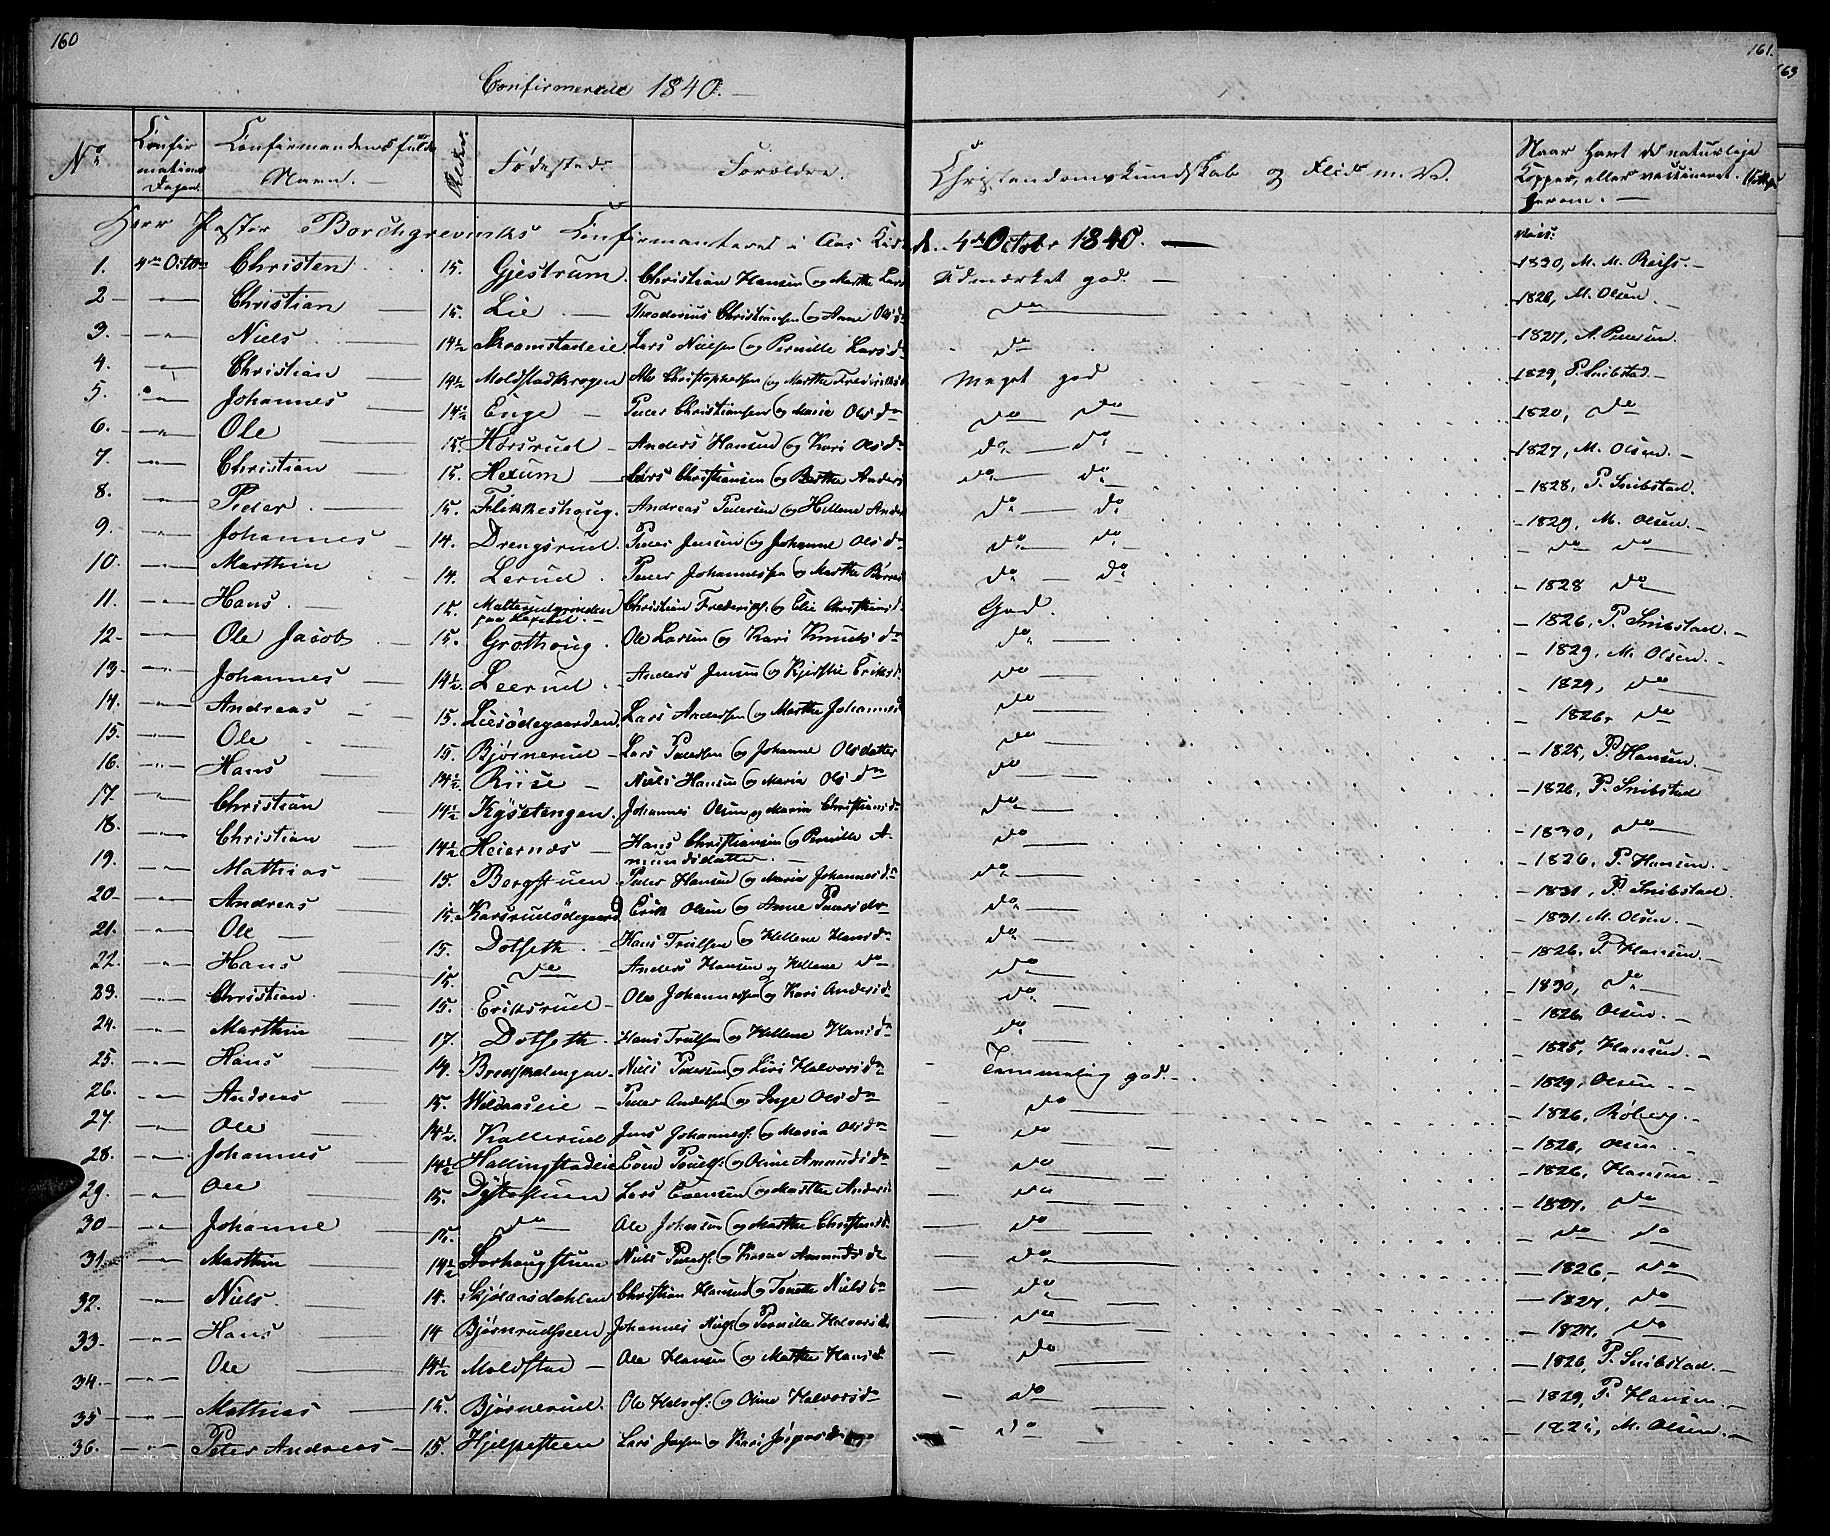 160
161.
163
Confirmerede 1840. —
No
Confirmations Dagen.
Confirmandens fulde Navn. —
Alder.
Fødested.
Forældre.
Christendomskundskab og Flid m. V.
Naar havt de naturlige Kopper, eller vaccineret
Herr Pastor Borchgrevinks Confirmanter i Aas Kirke d. 4de October 1840. —
vacc:
1. 4de Octo Christen 15. Gjestrum. Christian Hansen og Marthe Lars Udmærket god. — 1830, M. M. Beichs. —
2 — " — Christian — 15. Lie. — Theodorius Christiansen og Anne Olsdr do — 1828, M. Olsen. —
3. — " — Niels 14½ Lars Nielsen og Pernille Larsdr do — 1827, A. Petersen.
4. — " — Christian — 14½ Moldstadkrogen Christophersen og Marthe Fredriks Meget god 1829, P. Snibstad —
5. — " — Johannes — 14½ Enge — Peder Christiansen og Marie Olsdr do do 1820, do
6. — " — Ole — 15. Horsrud — Anders Hansen og Kari Olsdr do — do — 1827, M. Olsen. —
7. — " — Christian — 15. Hexum — Lars Christiansen og Berthe Anders do do — 1828, P. Snibstad.
8. — " — Peder. — 15. Flikkeshoug. Andreas Pedersen og Hellene Ander do — do — 1829, M. Olsen. —
9. — " — Johannes — 14. Drengsrud. Peder Jensen og Johanne Olsdr do — do — do do —
10. — " — Marthin 14. Lerud. Peder Johannessen og Marthe do — do — 1828 do —
11. — " — Hans. — 15. Christian Frederiks. og Elie Christiansdr God. — 1826, P. Snibstad. —
12 — " — Ole Jacob — 15. Grøthoug. Ole Larsen og Kari Knudsdr do — 1829, M. Olsen. —
13 — " — Johannes — 14½ Leerud. — Anders Jensen og Kjerstie Eriksd. do — 1829, do —
14. — " — Andreas — 15. Liesødegaarden. Lars Andersen og Marthe Johannesd do — 1826, do —
15. — " — Ole — 15. Bjørnerud — Lars Pedersen og Johanne Olsdatter do — 1825, P. Hansen. —
16. — " — Hans — 14½ Riise — Niels Hansen og Maria Olsdr do — 1826, P. Snibstad
17. — " — Christian — 14½ Kysetengen. Johannes Olsen og Maria Christiansdr do — 1830, do —
18. — " — Christian — 14½ Heiernes — Hans Christiansen og Pernille A-mundsdatter. — do — 1826, P. Hansen. —
19. — " — Mathias — 15. Bergstuen. Peder Hansen og Maria Johannesdr do — 1831, P. Snibstad.
20 — " — Andreas — 15. Karsrudødegaard Erik Olsen og Anne Pedersdr do — 1831. M. Olsen. —
21. — " — Ole — 15. Dotseth. — Hans Trulsen og Hellene Hansdr do — 1826, P. Hansen. —
22. — " — Hans — 15. do Anders Hansen og Hellene do do — 1830, do —
23. — " — Christian. — 15. Eriksrud — Ole Johannessen og Kari Andersdr do — 1826, Olsen. —
24. — " — Marthin — 17. Dotseth. — Hans Trulsen og Hellene Hansdr do — 1825, Hansen. —
25. — " — Hans — 14. Niels Pedersen og Siri Halvorsdr — Temmelig god. — 1829, Olsen — —
26. — " — Andreas — 15. Peder Andersen og Inge Olsdr — do — 1826, Røberg. —
27. — " — Ole — 14½. Kallerud Jens Johannes. og Maria Olsdr — do — 1826, Olsen — —
28. — " — Johannes — 14½ Hallingstadeie Even Pouls. og Oline Amundsdr — do — 1826, Hansen —
29. — " — Ole — 15. Dystestuen Lars Evensen og Marthe Anders — do — 1827. do —
30 — " — Johanne — 15. do Ole Johnsen og Marthe Christiansd. — do — do do —
31. — " — Marthin — 14½ Niels Peders. og Karen Amundsdr — do — 1826, do —
32. — " — Niels. — 14. Skjølaasdahlen Christian Hansen og Tonette Nielsdr — do — 1827, do —
33. — " — Hans — 14 Bjørnrudseen Johannes og Pernille Halvorsdr — do — 1827. do —
34. — " — Ole — 14½ Moldstad — Ole Hansen og Marthe Hansdr — do — 1826, P. Snibstad. —
35 — " — Mathias — 15. Bjørnerud. Ole og Oline Halvorsdr — do — 1829, P. Hansen. —
36. — " — Peter Andreas — 15. Hjelpesteen Lars og Kari Jespersdr — do — M. Olsen. —